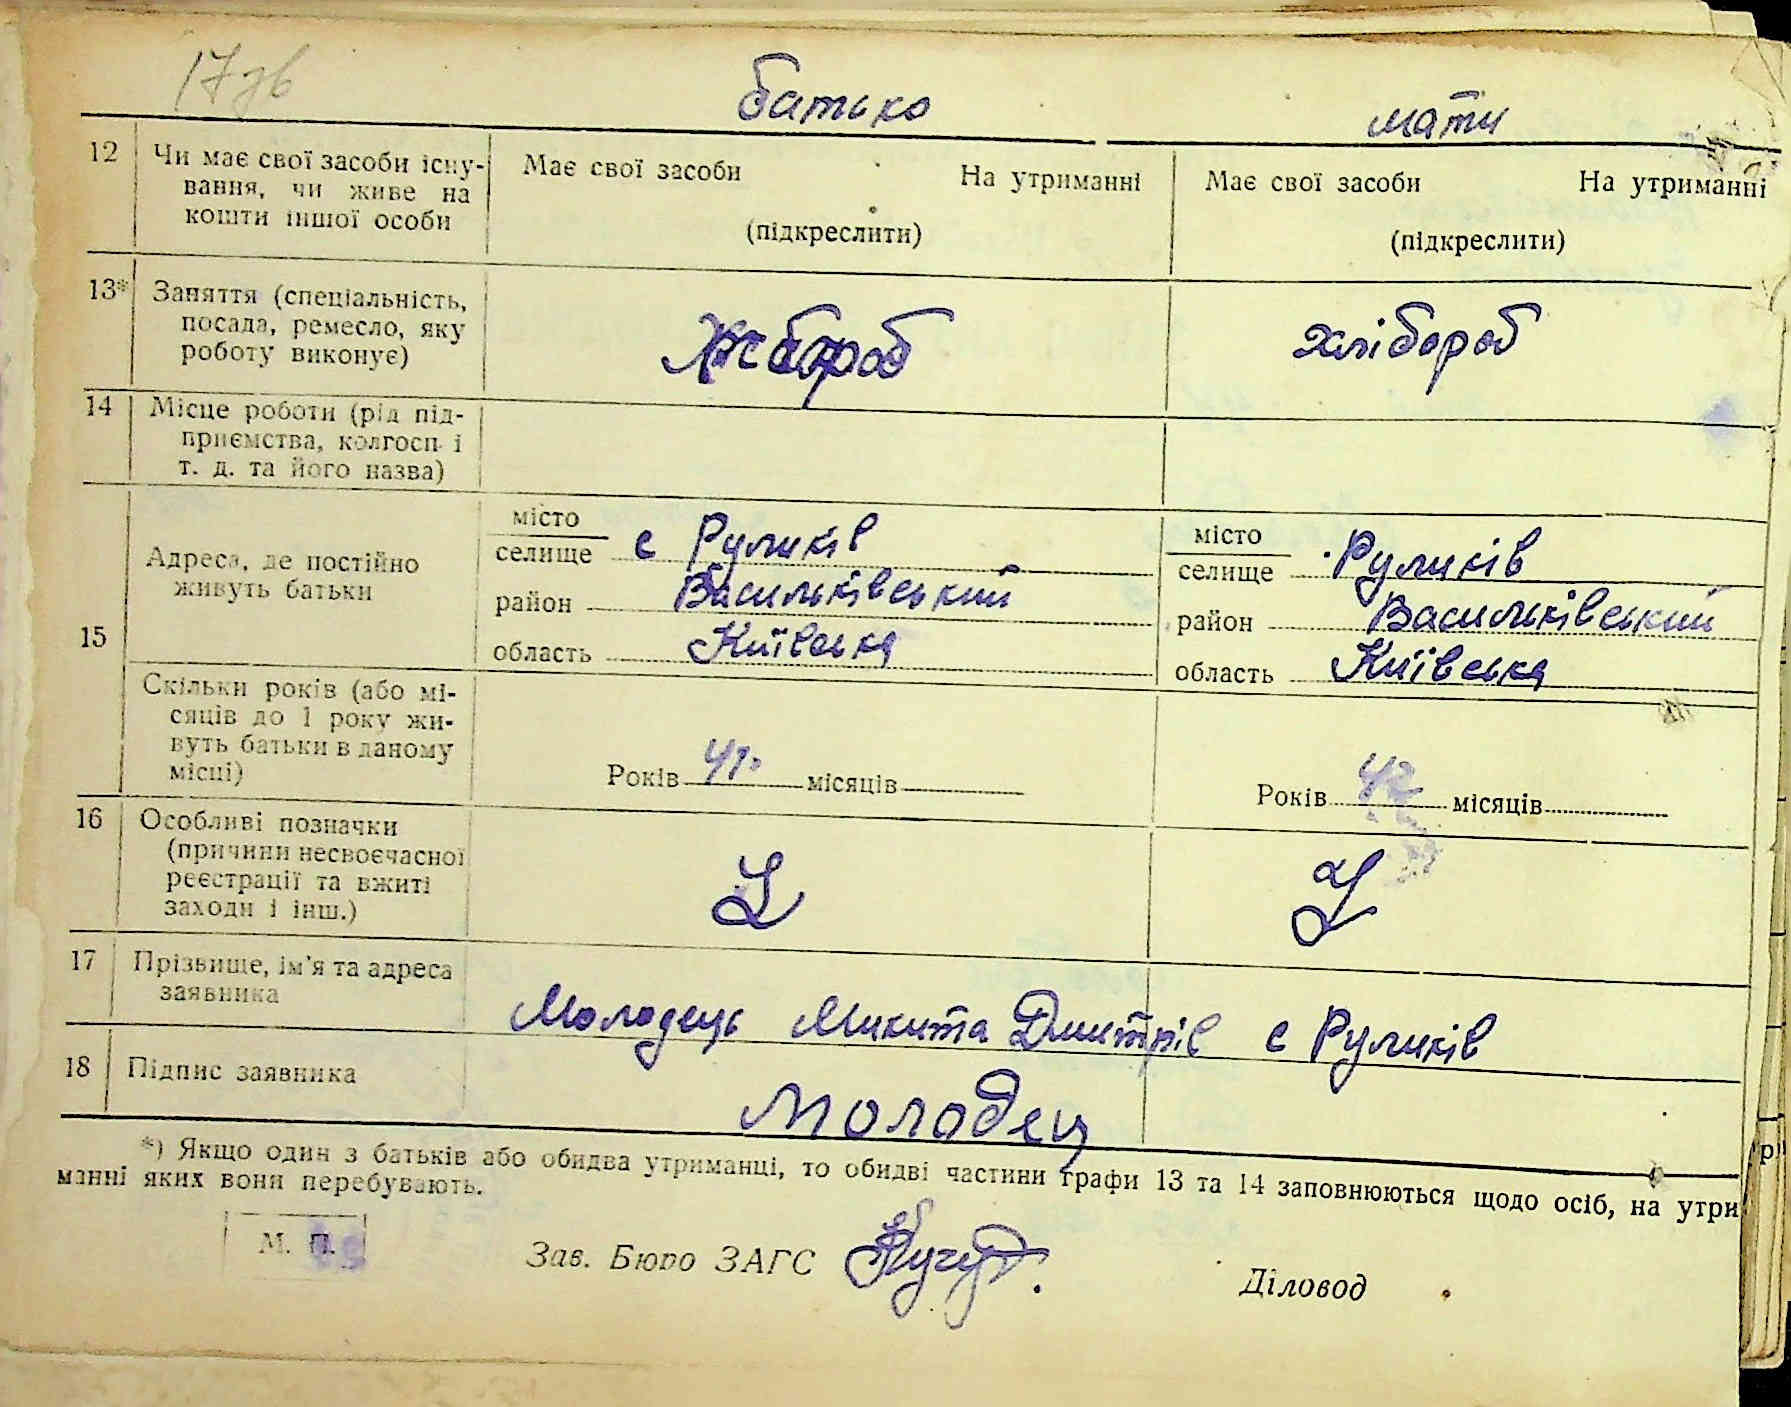 17 зв
батько мати
12 Чи має свої засоби існу- Має свої засоби На утриманні Має свої засоби На утриманні
вання, чи живе на
кошти іншої особи (підкреслити) (підкреслити)
13* Заняття (спеціальність,
посада, ремесло, яку хлібороб хлібороб
роботу виконує)
14 Місце роботи (рід під-
приємства, колгосп і
т. д. та його назва)
15 Адреса, де постійно
живуть батьки
місто місто
селище с Руликів селище Руликів
район Васильківський район Васильківський
область Київська область Київська
Скільки років (або мі-
сяців до 1 року жи-
вуть батьки в даному
місці)
Років 41 місяців Років 42 місяців
16 Особливі позначки
(причини несвоєчасної
реєстрації та вжиті
заходи і інш.)
17 Прізвище, ім'я та адреса
заявника
Молодець Микита Дмитрів с Руликів
18 Підпис заявника
Молодец
*) Якщо один з батьків або обидва утриманці, то обидві частини графи 13 та 14 заповнюються щодо осіб, на утри
манні яких вони перебувають.
М. П.
Зав. Бюро ЗАГС Діловод